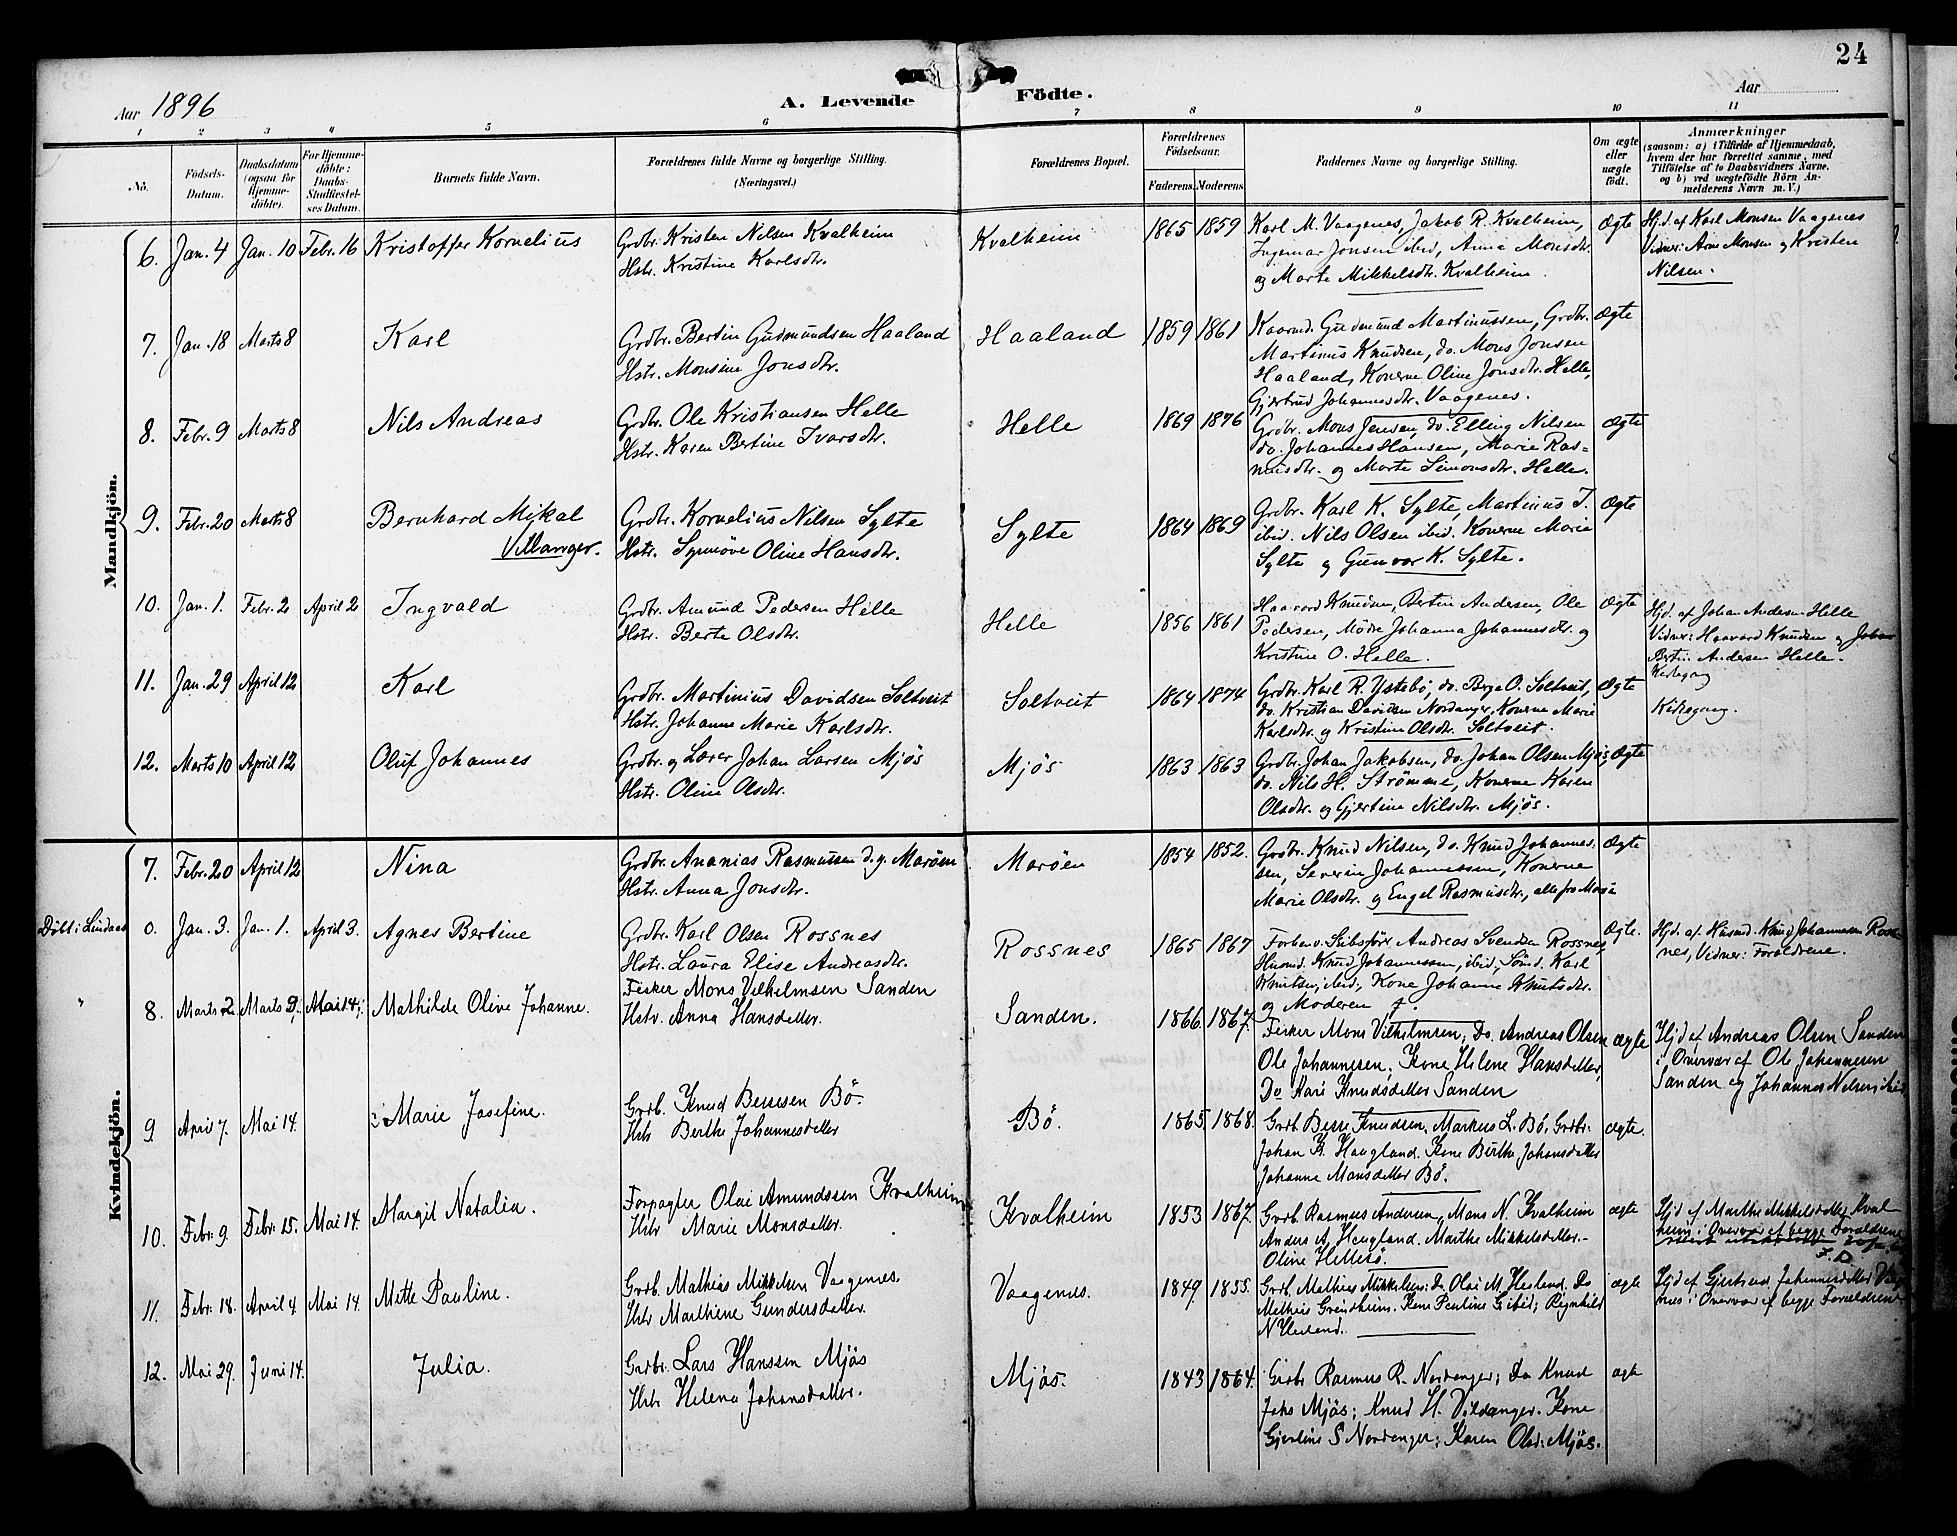 24
Aar 1896
A. Levende Födte.
Aar
1 2 3 4 5 6 7 8 9 10 11
No.
Födsels-Datum.
Daabsdatum (ogsaa for Hjemme-döbte).
For Hjemme-döbte: Daabs-Stadfæstel-ses Datum.
Barnets fulde Navn.
Forældrenes fulde Navne og borgerlige Stilling. (Næringsvei.)
Forældrenes Bopæl.
Forældrenes Födselsaar.
Faderens. Moderens.
Faddernes Navne og borgerlige Stilling.
Om ægte eller uægte født.
Anmærkninger
(saasom: a) i Tilfælde af Hjemmedaab, hvem der har forrettet samme, med Tilföielse af to Daabsvidners Navne, og b) ved uægtefödte Börn An-melderens Navn m. V.)
Mandkjön.
6. Jan. 4 Jan. 10 Febr. 16 Kristoffer Kornelius
Grdbr. Kristen Nilsen Kvalheim
Hstr. Kristine Karlsdtr.
Kvalheim 1865 1859
Karl M. Vaagenes, Jakob R. Kvalheim,
Ingemar Jonsen ibid, Anna Monsdtr.
og Marte Mikkelsdtr. Kvalheim.
Ægte
Hjd. af Karl Monsen Vaagenes
Vidner: Arne Monsen og Kristen
Nilsen.
7. Jan. 18 Marts 8 Karl
Grdbr. Bertin Gudmundsen Haaland
Hstr. Monsine Jonsdtr.
Haaland 1859 1861
Kaarmd. Gudmund Martinussen, Grdbr.
Martinus Knudsen, do. Mons Jonsen
Haaland, Konerne Oline Jonsdtr. Helle,
Gjertrud Johannesdtr. Vaagenes.
Ægte
8. Febr. 9 Marts 8 Nils Andreas
Grdbr. Ole Kristiansen Helle
Hstr. Karen Bertine Ivarsdtr.
Helle 1869 1876
Grdbr. Mons Jensen, do. Elling Nilsen
do. Johannes Hansen, Marie Ras=
musdtr. og Marte Simonsdtr. Helle.
Ægte
9. Febr. 20 Marts 8 Bernhard Mikal
Villanger.
Grdbr. Kornelius Nilsen Sylte
Hstr. Synnöve Oline Hansdtr.
Sylte 1864 1869
Grdbr. Karl K. Sylte, Martinus T.
ibid. Nils Olsen ibid. Konerne Marie
Sylte og Gunvor K. Sylte.
Ægte
10. Jan. 1. Febr. 2 April 2 Ingvald
Grdbr. Amund Pedersen Helle
Hstr. Berte Olsdtr.
Helle 1856 1861
Haavard Knudsen, Bertin Andersen, Ole
Pedersen, Mødre Johanna Johannesdtr. og
Kristine O. Helle.
Ægte
Hjd. af Johan Andersen Helle
Vidner: Haavard Knudsen og Johan
Bertin Andersen Helle.
Kirkegang
11. Jan. 29 April 12 Karl
Grdbr. Martinius Davidsen Soltveit
Hstr. Johanne Marie Karlsdtr.
Soltveit 1864 1874
Grdbr. Karl R. Ystebö, do. Brye O. Soltveit,
do. Kristian Davidsen Nordanger, Konerne Marie
Karlsdtr. og Kristine Olsdtr. Soltveit.
Ægte
Kirkegang.
12. Marts 10 April 12 Oluf Johannes
Grdbr. og Lærer Johan Larsen Mjös
Hstr. Oline Olsdtr.
Mjös 1863 1863
Grdbr. Johan Jakobsen, do. Johan Olsen Mjös
do. Nils H. Strömme, Konerne Karen
Olsdtr. og Gjertine Nilsdtr. Mjös.
Ægte
Kvindekjön.
7. Febr. 20 April 12 Nina
Grdbr. Ananias Rasmussen d.y. Maröen
Hstr. Anna Jonsdtr.
Maröen 1854 1852.
Grdbr. Knud Nilsen, do. Knud Johannes.
sen, Severin Johannessen, Konerne
Marie Olsdtr. og Engel Rasmusdtr., alle fra Marö
Ægte
Döbt i Lindaas 0. Jan. 3. Jan. 1. April 3. Agnes Bertine
Grdbr. Karl Olsen Rossnes
Hstr. Laura Elise Andreasdtr.
Rossnes 1865 1867
Forhenv. Skibsförer Andreas Svendsen Rossnes,
Husmd. Knud Johannessen, ibid, Karl
Knutsen, ibid, Kone Johanne Knutsdtr.
og Moderen
Ægte.
Hjd. af Husmd. Knud Johannessen Ross=
nes, Vidner: Forældrene.
" 8. Marts 2 Marts 9, Mai 14; Mathilde Olive Johanne.
Fisker Mons Vilhelmsen Sanden
Hstr. Anna Hansdatter.
Sanden. 1866. 1867.
Fisker Mons Vilhelmsen; Do. Andreas Olsen
Ole Johannesen. Kone Helene Hansdatter,
Do Kari Knudsdatter Sanden
ægte
Hjd af Andreas Olsen Sanden
i Overvær af Ole Johannesen
Sanden og Johannes Nelsen ibid
9 April 7. Mai 14. Marie Josefine.
Grdb. Knud Bessesen Bö.
Hstr Berthe Johannesdatter
Bö. 1865. 1868.
Grdb Besse Knudsen, Markus L. Bö, Grdbr.
Johan K. Haugland. Kone Birthe Johansdatter
Johanne Mansdatter Bö.
ægte.
10. Febr: 9 Febr: 15. Mai 14. Margit Natalia.
Forpagter Olai Amundssen Kvalheim
Hstr Marie Monsdatter.
Kvalheim 1853 1867.
Grdb. Rasmus Andersen, Mons N. Kvalheim
Anders A. Haugland. Marthe Mikkelsdatter.-
Oline Hillesö.
ægte
Hjd af Marthe Mikkelsdatter Kval
heim i Overvær af begge Forældrene
11. Febr: 18. April 4 Mai 14. Mette Pauline.
Grdb. Mathias Mikkelsen Vaagenes.
Hstr Mathiene Gundersdatter.
Vaagenes. 1849. 1855.
Grdb. Mathias Mikkelsen; Do Olai M. Hesland. Do
Mathias Greindheim. Kone Pauline G ibid; Regnhild
N Uesland.
ægte
Hjd af Gjertrud Johannesdatter Vaage
nes i Overvær af begge Forældrene
12. Mai 29. Juni 14. Julia.
Gardbr. Lars Hanssen Mjös
Hstr Helena Johansdatter.
Mjös. 1843 1864.
Grdbr Rasmus R. Nordanger; Do Knud
Jaks Mjös; Knud H. Vildanger. Kone
Gjertine S Nordanger; Karen Olsd: Mjös.
ægte